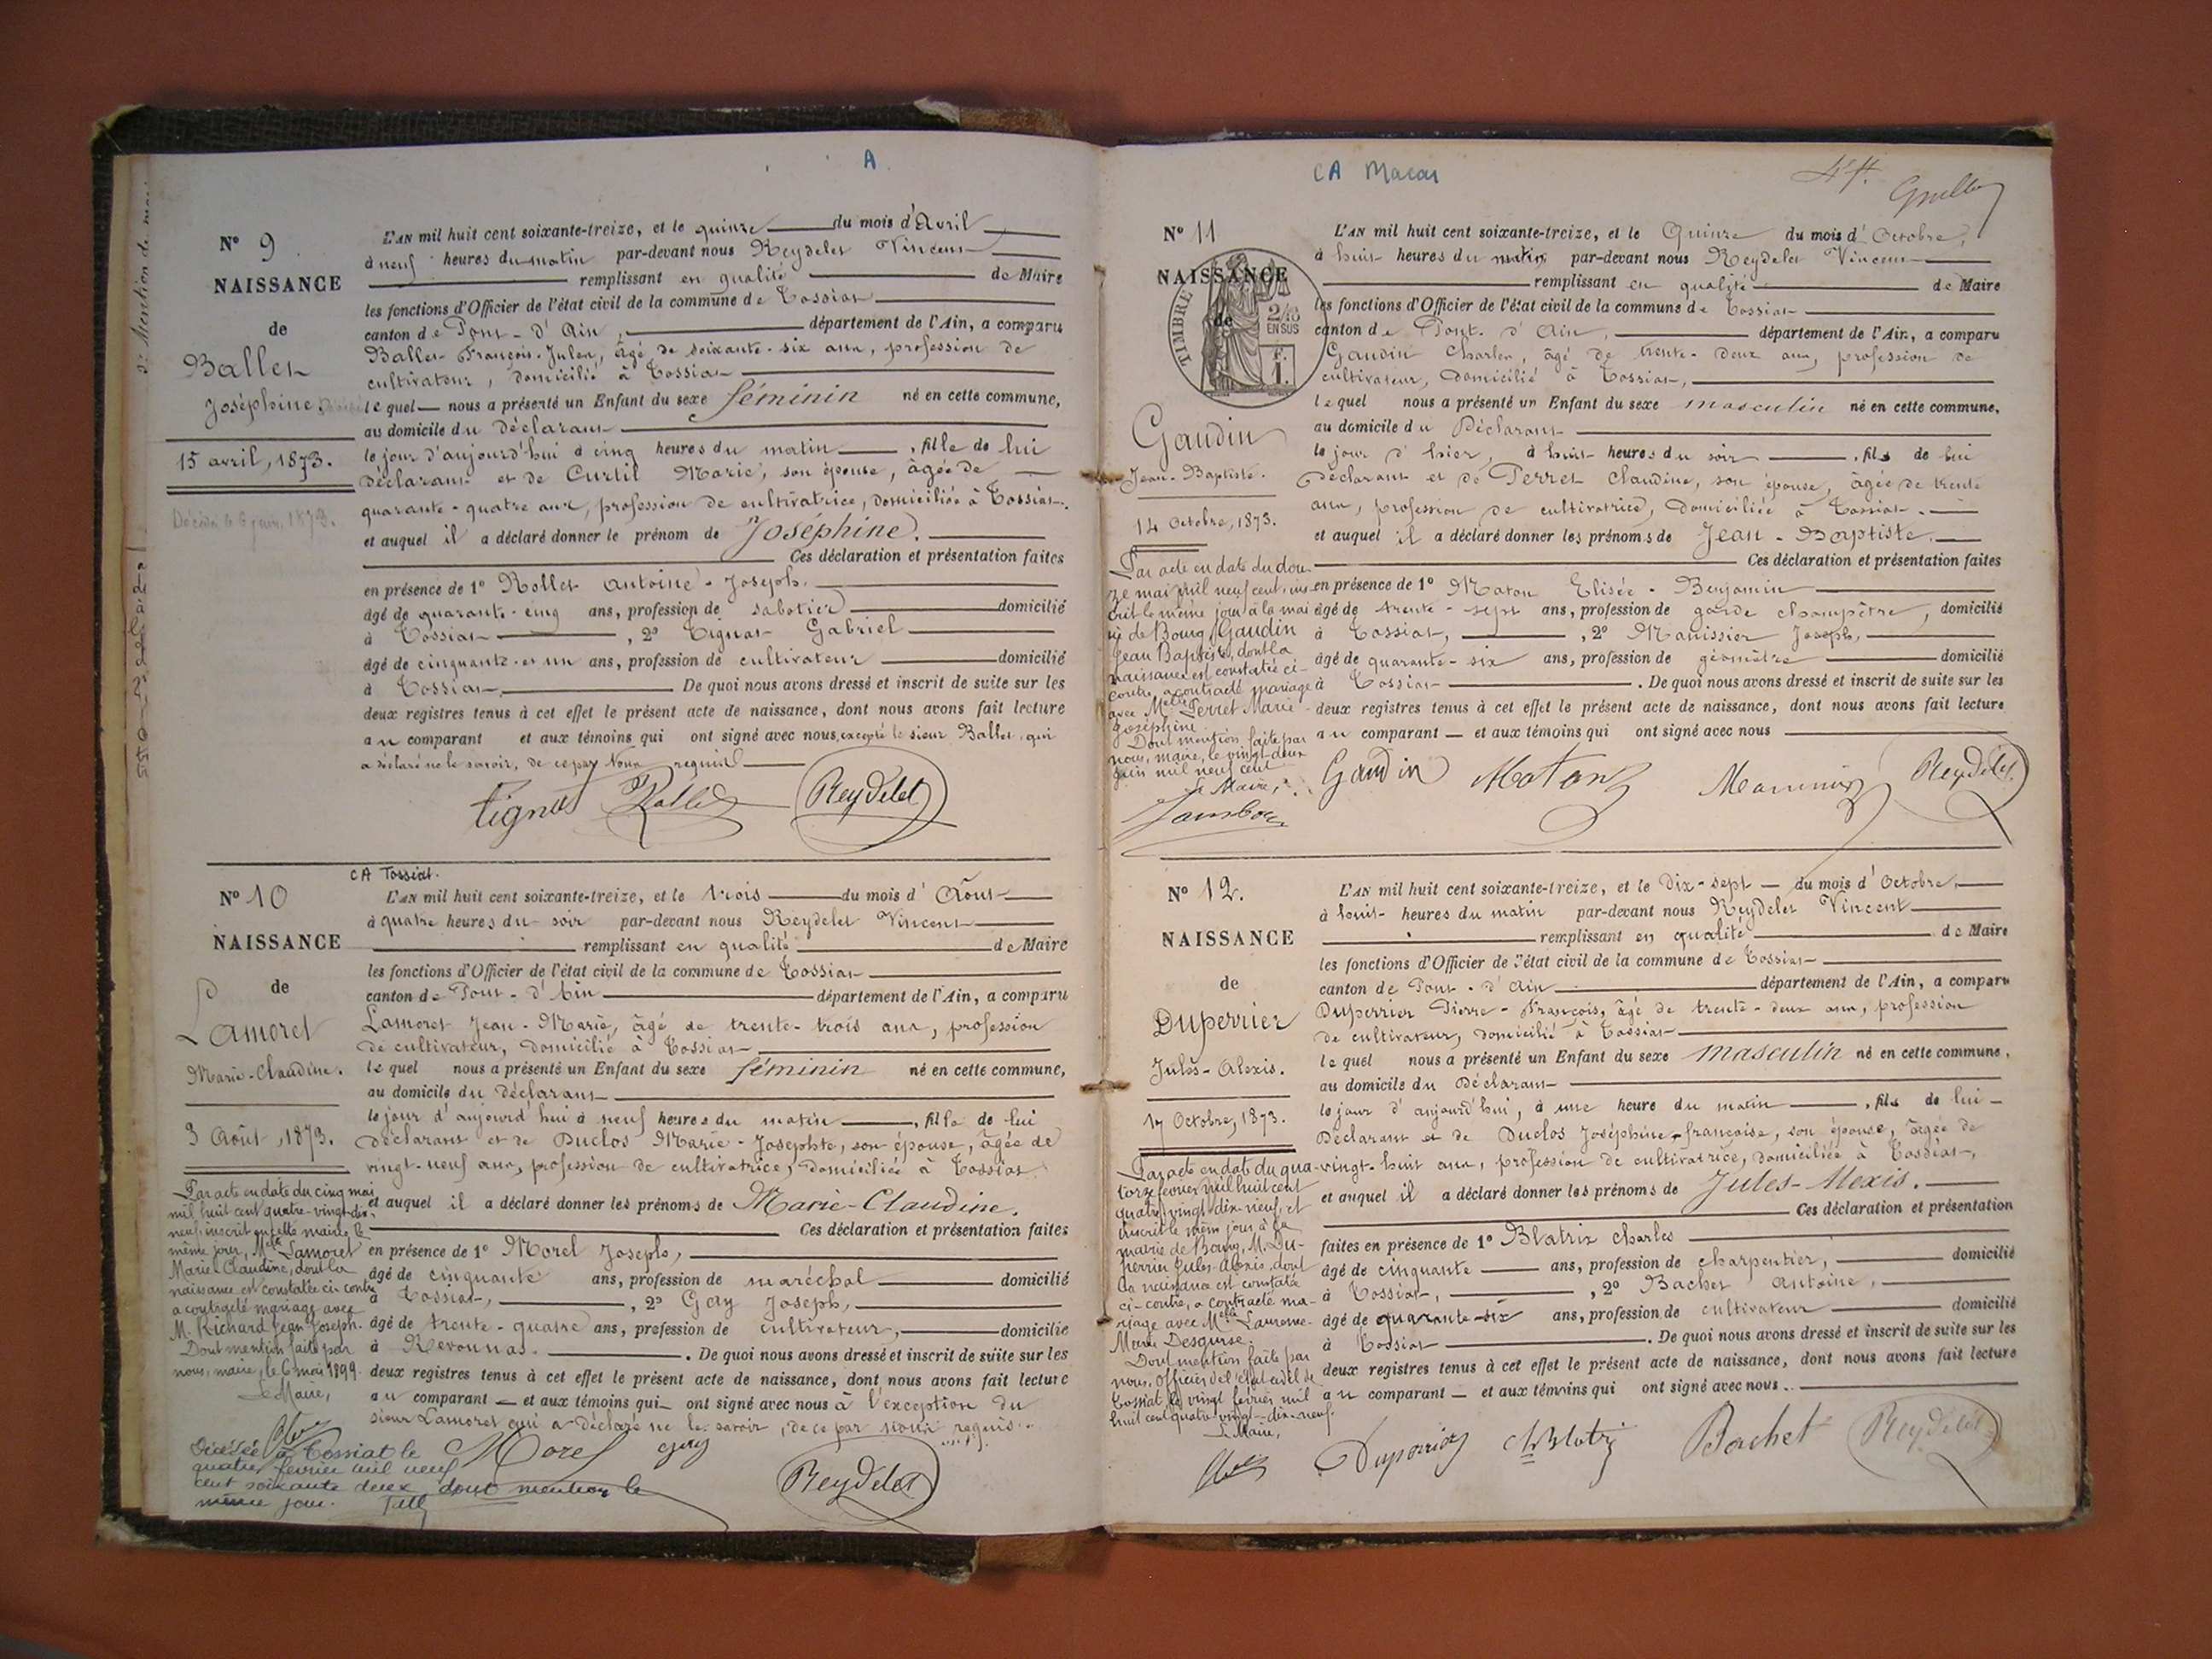 A
N° 9
NAISSANCE
de
Ballet
Joséphine.
15 avril, 1873.
Décédée le 6 juin, 1873.
L'AN mil huit cent soixante-treize, et le quinze du mois d'Avril
à neuf heures du matin par-devant nous Reydelet Vincent
remplissant en qualité de Maire
les fonctions d'Officier de l'état civil de la commune de Tossiat
canton de Pont-d'Ain, département de l'Ain, a comparu
Ballet François-Julien, âgé de soixante-six ans, profession de
cultivateur, domicilié à Tossiat
lequel nous a présenté un Enfant du sexe féminin né en cette commune,
au domicile du Déclarant
le jour d'aujourd'hui à cinq heures du matin, fille de lui
déclarant et de Curtil Marie, son épouse, âgée de
quarante-quatre ans, profession de cultivatrice, domiciliée à Tossiat.
et auquel il a déclaré donner le prénom de Joséphine.
Ces déclaration et présentation faites
en présence de 1° Rollet Antoine-Joseph,
âgé de quarante-cinq ans, profession de sabotier domicilié
à Tossiat, 2° Tignat Gabriel
âgé de cinquante-et-un ans, profession de cultivateur domicilié
à Tossiat, De quoi nous avons dressé et inscrit de suite sur les
deux registres tenus à cet effet le présent acte de naissance, dont nous avons fait lecture
au comparant et aux témoins qui ont signé avec nous, excepté le sieur Ballet, qui
a déclaré ne le savoir, de ce par Nous requis
Tignat Rollet Reydelet
CA Tossiat.
N° 10
NAISSANCE
de
Lamoret
Marie-Claudine.
3 Août, 1873.
Par acte en date du cinq mai
mil huit cent quatre-vingt-dix-
neuf, inscrit en cette mairie le
même jour, Melle Lamoret
Marie-Claudine, dont la
naissance est constatée ci-contre
a contracté mariage avec
M. Richard Jean Joseph.
Dont mention faite par
nous, maire, le 6 mai 1899
Le Maire,
Décédée à Tossiat le
quatre février mil neuf
cent soixante deux dont mention le
même jour.
L'AN mil huit cent soixante-treize, et le trois du mois d'Août
à quatre heures du soir par-devant nous Reydelet Vincent
remplissant en qualité de Maire
les fonctions d'Officier de l'état civil de la commune de Tossiat
canton de Pont-d'Ain département de l'Ain, a comparu
Lamoret Jean-Marie, âgé de trente-trois ans, profession
de cultivateur, domicilié à Tossiat
lequel nous a présenté un Enfant du sexe féminin né en cette commune,
au domicile du Déclarant
le jour d'aujourd'hui à neuf heures du matin, fille de lui
Déclarant et de Duclos Marie-Josephte, son épouse, âgée de
vingt-neuf ans, profession de cultivatrice, domiciliée à Tossiat
et auquel il a déclaré donner les prénoms de Marie-Claudine.
Ces déclaration et présentation faites
en présence de 1° Morel Joseph,
âgé de cinquante ans, profession de maréchal domicilié
à Tossiat, 2° Gay Joseph,
âgé de trente-quatre ans, profession de cultivateur, domicilié
à Revonnas. De quoi nous avons dressé et inscrit de suite sur les
deux registres tenus à cet effet le présent acte de naissance, dont nous avons fait lecture
au comparant et aux témoins qui ont signé avec nous à l'exception du
sieur Lamoret qui a déclaré ne le savoir, de ce par nous requis.
Morel Gay
Reydelet
CA Macon
N° 11
NAISSANCE
de
TIMBRE
2/10
EN SUS
F.
1.
Gaudin
Jean-Baptiste.
14 Octobre, 1873.
Par acte en date du dou-
ze mai mil neuf cent, ins-
crit le même jour à la mai
rie de Bourg, Gaudin
Jean Baptiste, dont la
naissance est constatée ci-
contre, a contracté mariage
avec Melle Perret Marie-
Joséphine
Dont mention faite par
nous, maire, le vingt-deux
juin mil neuf cent
Le Maire,
L'AN mil huit cent soixante-treize, et le Quinze du mois d'Octobre,
à huit heures du matin par-devant nous Reydelet Vincent
remplissant en qualité de Maire
les fonctions d'Officier de l'état civil de la commune de Tossiat
canton de Pont-d'Ain, département de l'Ain, a comparu
Gaudin Charles, âgé de trente-deux ans, profession de
cultivateur, domicilié à Tossiat,
lequel nous a présenté un Enfant du sexe masculin né en cette commune,
au domicile du Déclarant
le jour d'hier, à huit heures du soir, fils de lui
Déclarant et de Perret Claudine, son épouse, âgée de trente
ans, profession de cultivatrice, domiciliée à Tossiat.
et auquel il a déclaré donner les prénoms de Jean-Baptiste.
Ces déclaration et présentation faites
en présence de 1° Maton Elisée-Benjamin
âgé de trente-sept ans, profession de garde champêtre, domicilié
à Tossiat, 2° Manissier Joseph,
âgé de quarante-six ans, profession de géomètre domicilié
à Tossiat. De quoi nous avons dressé et inscrit de suite sur les
deux registres tenus à cet effet le présent acte de naissance, dont nous avons fait lecture
au comparant et aux témoins qui ont signé avec nous
Gaudin Maton Manissier Reydelet
N° 12.
NAISSANCE
de
Duperrier
Jules-Alexis.
17 Octobre, 1873.
Par acte en date du qua-
torze février mil huit cent
quatre vingt-dix-neuf, et
inscrit le même jour à la
mairie de Bourg, M. Du-
perrier Jules-Alexis, dont
la naissance est constatée
ci-contre, a contracté ma-
riage avec Melle Laurence-
Marie Desgurse.
Dont mention faite par
nous, Officier de l'état civil de
Tossiat, le vingt février mil
huit cent quatre vingt-dix-neuf.
Le Maire,
L'AN mil huit cent soixante-treize, et le Dix-sept du mois d'Octobre,
à huit heures du matin par-devant nous Reydelet Vincent
remplissant en qualité de Maire
les fonctions d'Officier de l'état civil de la commune de Tossiat
canton de Pont-d'Ain département de l'Ain, a comparu
Duperrier Pierre-François, âgé de trente-deux ans, profession
de cultivateur, domicilié à Tossiat
lequel nous a présenté un Enfant du sexe masculin né en cette commune,
au domicile du Déclarant
le jour d'aujourd'hui, à une heure du matin, fils de lui
Déclarant et de Duclos Joséphine-françoise, son épouse, âgée de
vingt-huit ans, profession de cultivatrice, domiciliée à Tossiat,
et auquel il a déclaré donner les prénoms de Jules-Alexis.
Ces déclaration et présentation
faites en présence de 1° Blatrix Charles
âgé de cinquante ans, profession de charpentier, domicilié
à Tossiat, 2° Bachet Antoine,
âgé de quarante-six ans, profession de cultivateur domicilié
à Tossiat. De quoi nous avons dressé et inscrit de suite sur les
deux registres tenus à cet effet le présent acte de naissance, dont nous avons fait lecture
au comparant et aux témoins qui ont signé avec nous.
Duperrier Ch Blatrix Bachet Reydelet